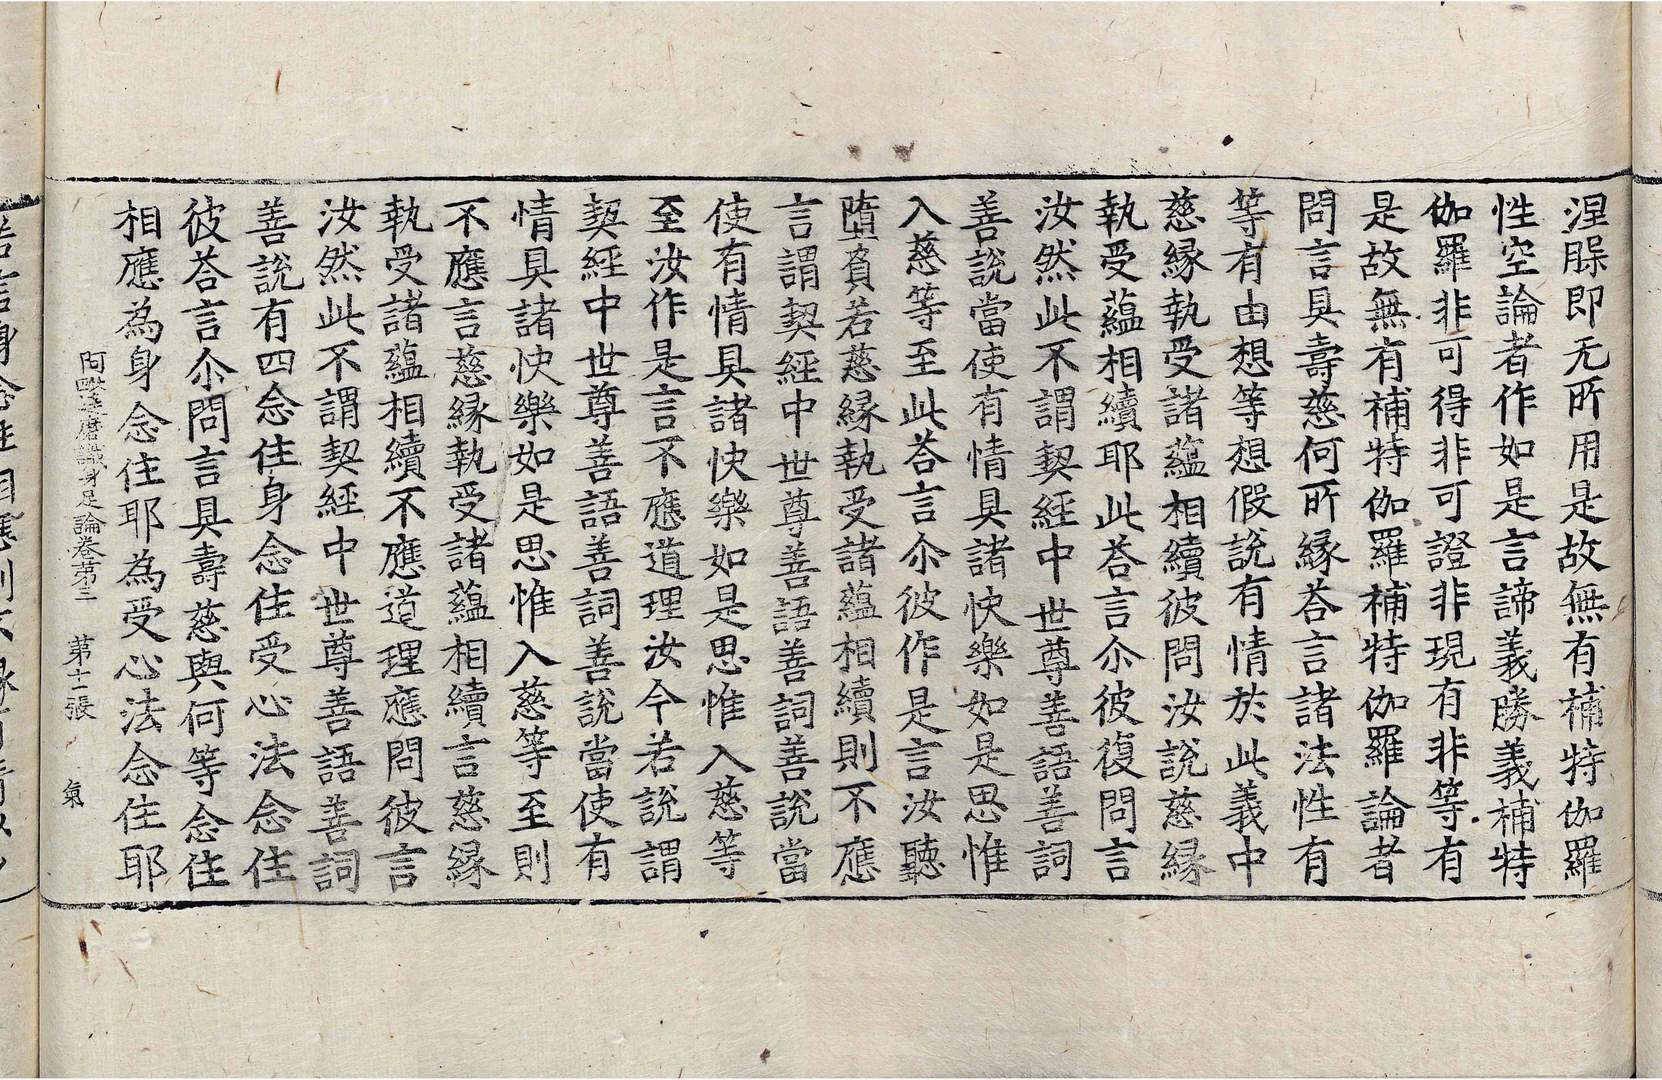 涅脲即无所用是故無有補特伽羅
性空論者作如是言諦義勝義補特
伽羅非可得非可證非現有非等有
是故無有補特伽羅補特伽羅論者
問言具壽慈何所緣荅言諸法性有
等有由想等想假說有情於此義中
慈緣執受諸蘊相續彼問汝說慈緣
執受蘊相續耶此荅言尒彼復問言
汝然此不謂契經中世尊善語善詞
善說當使有情具諸快樂如是思惟
入慈等至此荅言尒彼作是言汝聽
墮負若慈緣執受諸蘊相續則不應
言謂契經中世尊善語善詞善說當
使有情具諸快樂如是思惟入慈等
至汝作是言不應道理汝今若說謂
契經中世尊善語善詞善說當使有
情具諸快樂如是思惟入慈等至則
不應言慈緣執受諸蘊相續言慈緣
執受諸蘊相續不應道理應問彼言
汝然此不謂契經中世尊善語善詞
善說有四念住身念住受心法念住
彼荅言尒問言具壽慈與何等念住
相應為身念住耶為受心法念住耶
阿毗達磨識身足論卷第三 第十一張 氣